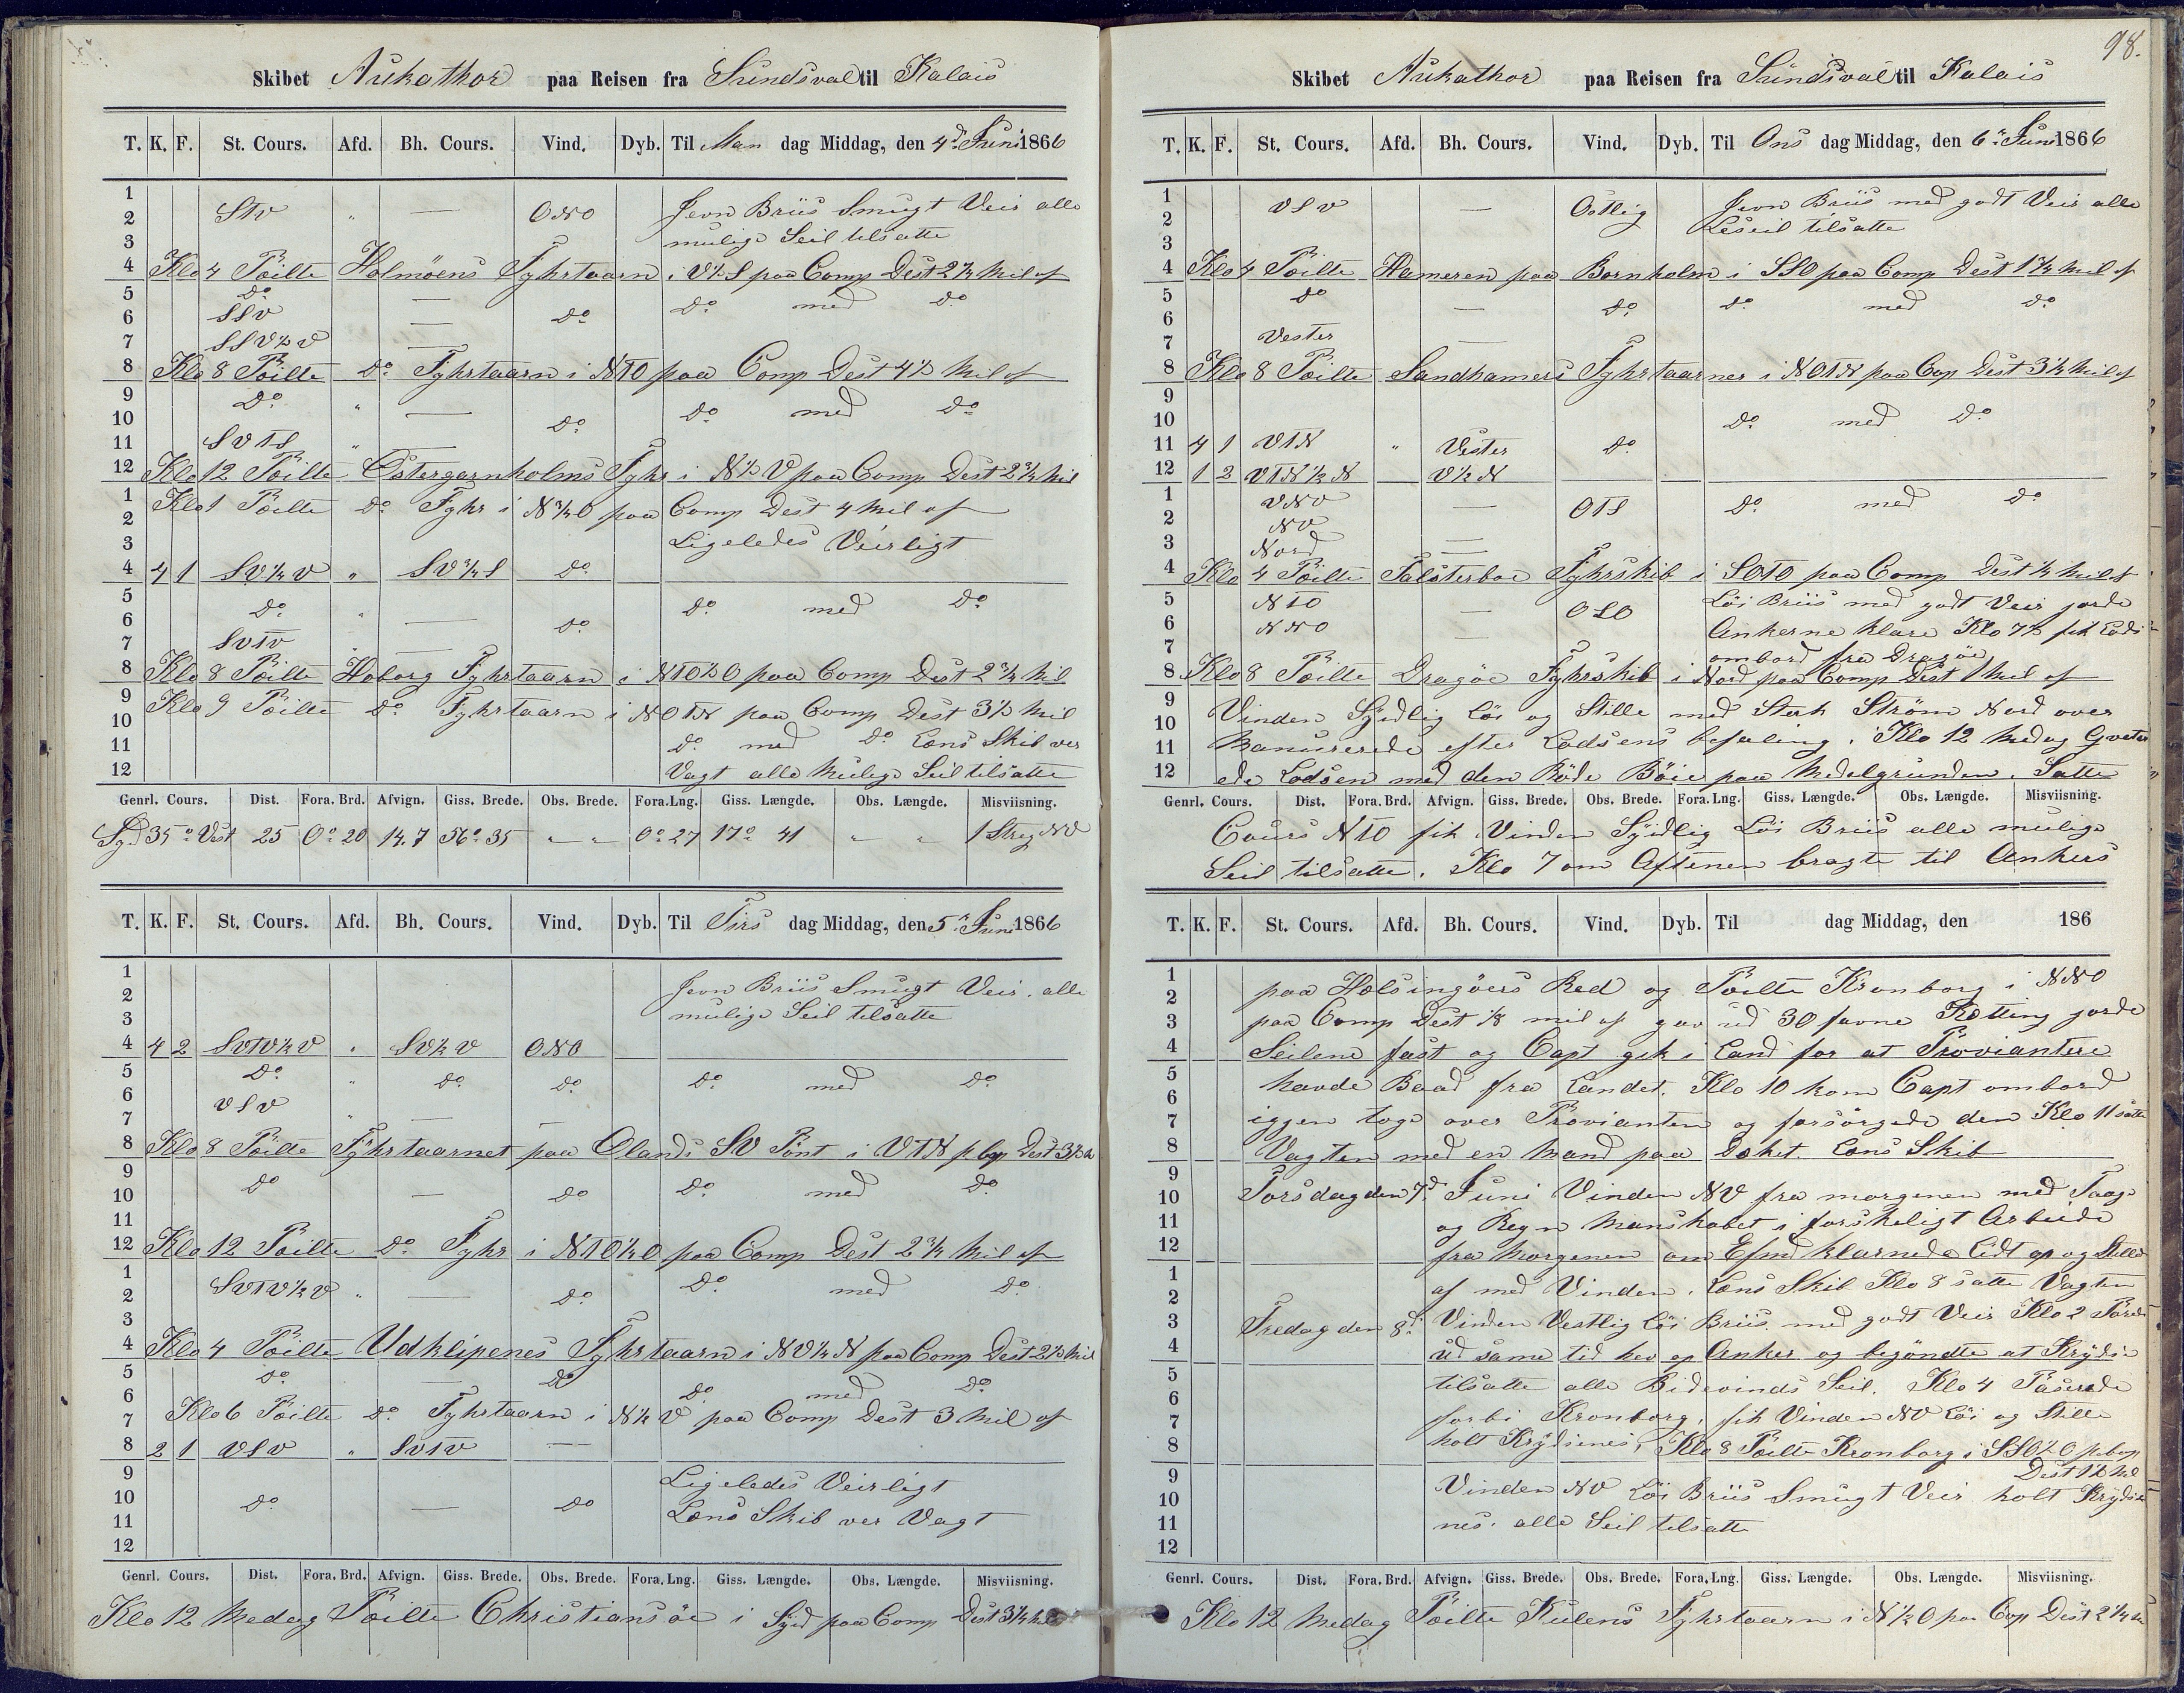 Skibet Aukathor paa Reisen fra Sundsval til Kalais
T. K. F. St. Cours. Afd. Bh. Cours. Vind. Dyb. Til Man dag Middag, den 4d Juni 1866
1
2 StV " — ONO Jevn Briis Smugt Veir alle
3 mulige Seil tilsatte
4 Klo 4 Pöilte Holmöens Fyhrtaarn i V½S paa Comp Dest 2¾ Mil af
5 do — do med do
6 SSV — do
7 SSV½V —
8 Klo 8 Pöilte do Fyhrtaarn i NTO paa Comp Dest 4½ Mil af
9 do " — do med do
10 do
11 SVTS "
12 Klo 12 Pöilte Östergarnholms Fyhr i N½V paa Comp Dest 2¾ Mil
1 Klo 1 Pöilte do Fyhr i N¾O paa Comp Dest 4 Mil af
2
3 Ligeledes Veirligt
4 4 1 SV¼V " SV¾S do
5 do " do med do
6 — do
7 SVTV —
8 Klo 8 Pöilte Hoborg Fyhrtaarn i NTO½O paa Comp Dest 2¾ Mil
9 Klo 9 Pöilte do Fyhrtaarn i NOTN paa Comp Dest 3½ Mil
10
11 do med do Læns Skib ver
12 Vagt alle Mulige Seil tilsatte
Genrl. Cours. Dist. Fora. Brd. Afvign. Giss. Brede. Obs. Brede. Fora.Lng. Giss. Længde. Obs. Længde. Misviisning.
Syd 35° Vest 25 0° 20 14.7 56° 35 " " 0° 27 17° 41 " " 1 Streg NV
T. K. F. St. Cours. Afd. Bh. Cours. Vind. Dyb. Til Tirs dag Middag, den 5d Juni 1866
1 Jevn Briis Smugt Veir. alle
2 mulige Seil tilsatte
3
4 4 2 SVTV½V " SV½V ONO
5 do " do do do med do
6 VSV
7 " —
8 Klo 8 Pöilte Fyhrtaarnet paa Ölands SV Pönt i VTN p Cop Dest 3½
9 do do med do
10 — do
11
12 Klo 12 Pöilte do Fyhr i NTO½O paa Comp Dest 2¾ Mil af
1 SVTV½V " — do do med do
2
3
4 Klo 4 Pöilte Udklipenes Fyhrtaarn i NV¼N paa Comp Dest 2½ Mil
5 do — do do med do
6 Klo 6 Pöilte do Fyhrtaarn i N¼V paa Comp Dest 3 Mil af
7
8 2 1 VSV " SVTV —
9 Ligeledes Veirligt
10 do — do
11 Læns Skib ver Vagt
12
Genrl. Cours. Dist. Fora. Brd. Afvign. Giss. Brede. Obs. Brede. Fora.Lng. Giss. Længde. Obs. Længde. Misviisning.
Klo 12 Medag Pöilte Christiansöe i Syd paa Comp Dest 3¼ Mil
98.
Skibet Aukathor paa Reisen fra Sundsval til Kalais
T. K. F. St. Cours. Afd. Bh. Cours. Vind. Dyb. Til Ons dag Middag, den 6d Juni 1866
1 VSV — Östlig Jevn Briis med godt Veir alle
2 Leseil tilsatte
3
4 Klo 4 Pöilte Hameren paa Bornholm i SSO paa Comp Dest 1¾ Mil af
5 do — do do med do
6
7 Vester —
8 Klo 8 Pöilte Sandhamers Fyhrtaarner i NOTN paa Cop Dest 3½ Mil af
9
10 do med do
11 4 1 VTN " Vester do
12 1 2 VTN½N V½N
1 VNV — OTS do med do
2 NV
3 Nord —
4 Klo 4 Pöilte Falsterboe Fyhrskib i SOTO paa Comp Dest ¼ Mil af
5 NTO — OSO Löi Briis med godt Veir jorde
6 NNO Ankerne klare Klo 7½ fik Lods
7 — ombord fra Dragöe
8 Klo 8 Pöilte Dragöe Fyhrskib i Nord paa Comp Dest 1 Mil af
9 Vinden Sydlig Löi og Stille med Sterk Ström Nord over
10
11 Manurerede efter Lodsens befaling. Klo 12 Medag Qveter
12 ede Lodsen med den Röde Böie paa Medelgrunden. Satte
Genrl. Cours. Dist. Fora. Brd. Afvign. Giss. Brede. Obs. Brede. Fora.Lng. Giss. Længde. Obs. Længde. Misviisning.
Cours NTO fik Vinden Sydlig Löi Briis alle mulige
Seil tilsatte. Klo 7 om Aftenen bragte til Ankers
T. K. F. St. Cours. Afd. Bh. Cours. Vind. Dyb. Til dag Middag, den 186
1 paa Helsingöers Red og Pöilte Kronborg i NNO
2
3 paa Comp Dest ⅛ mil af gav ud 30 favne Kætting jorde
4 Seilene fast og Capt gik i Land for at Proviantere
5 havde Baad fra Landet. Klo 10 kom Capt ombord
6
7 iggen toge over Provianten og forsörgede den Klo 11 satte
8 Vagten med en Mand paa Dæket. Læns Skib
9
10 Torsdag den 7d Juni Vinden NV fra morgenen med Taage
11 og Regn Manskabet i forskeligt Arbeide
12 fra Morgenen om Efmd klarnede Lidt op og Stilled
1 af med Vinden. Læns Skib Klo 8 satte Vagten
2
3 Fredag den 8d Vinden Vestlig Löi Briis. med godt Veir Klo 2 Pörede
4 ud same tid hev op Anker og begöndte at Krydse
5 tilsatte alle Bidevinds Seil. Klo 4 Paserede
6 forbi Kronborg, fik Vinden NV Löi og Stille
7
8 holt Krydsenes, Klo 8 Pöilte Kronborg i SSO½O p Cop
9 Dest 1½ Mil
Vinden NV Löi Briis Smugt Veir holt Krydse
10
11 nes. alle Seil tilsatte
12
Genrl. Cours. Dist. Fora. Brd. Afvign. Giss. Brede. Obs. Brede. Fora.Lng. Giss. Længde. Obs. Længde. Misviisning.
Klo 12 Medag Pöilte Kulens Fyhrtaarn i N½O paa Cop Dest 2¼